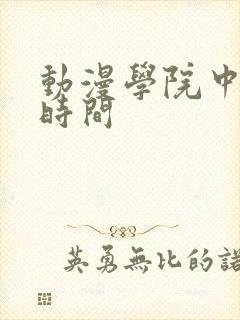 動漫學院中
時間
英勇無比的諾